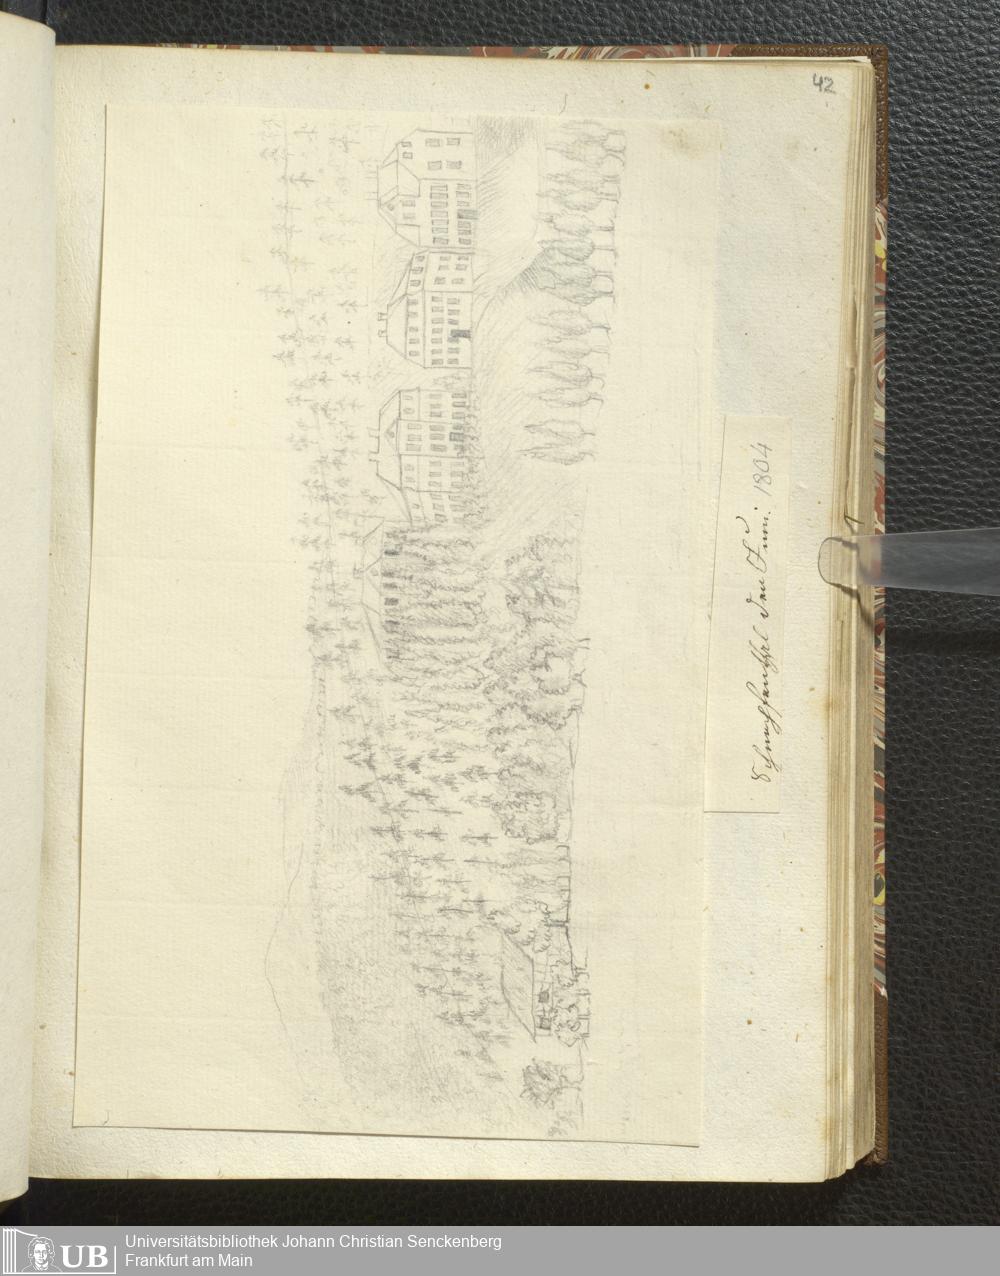 42
Schnepfenthal den Juni. 1804
UB
Universitätsbibliothek Johann Christian Senckenberg
Frankfurt am Main